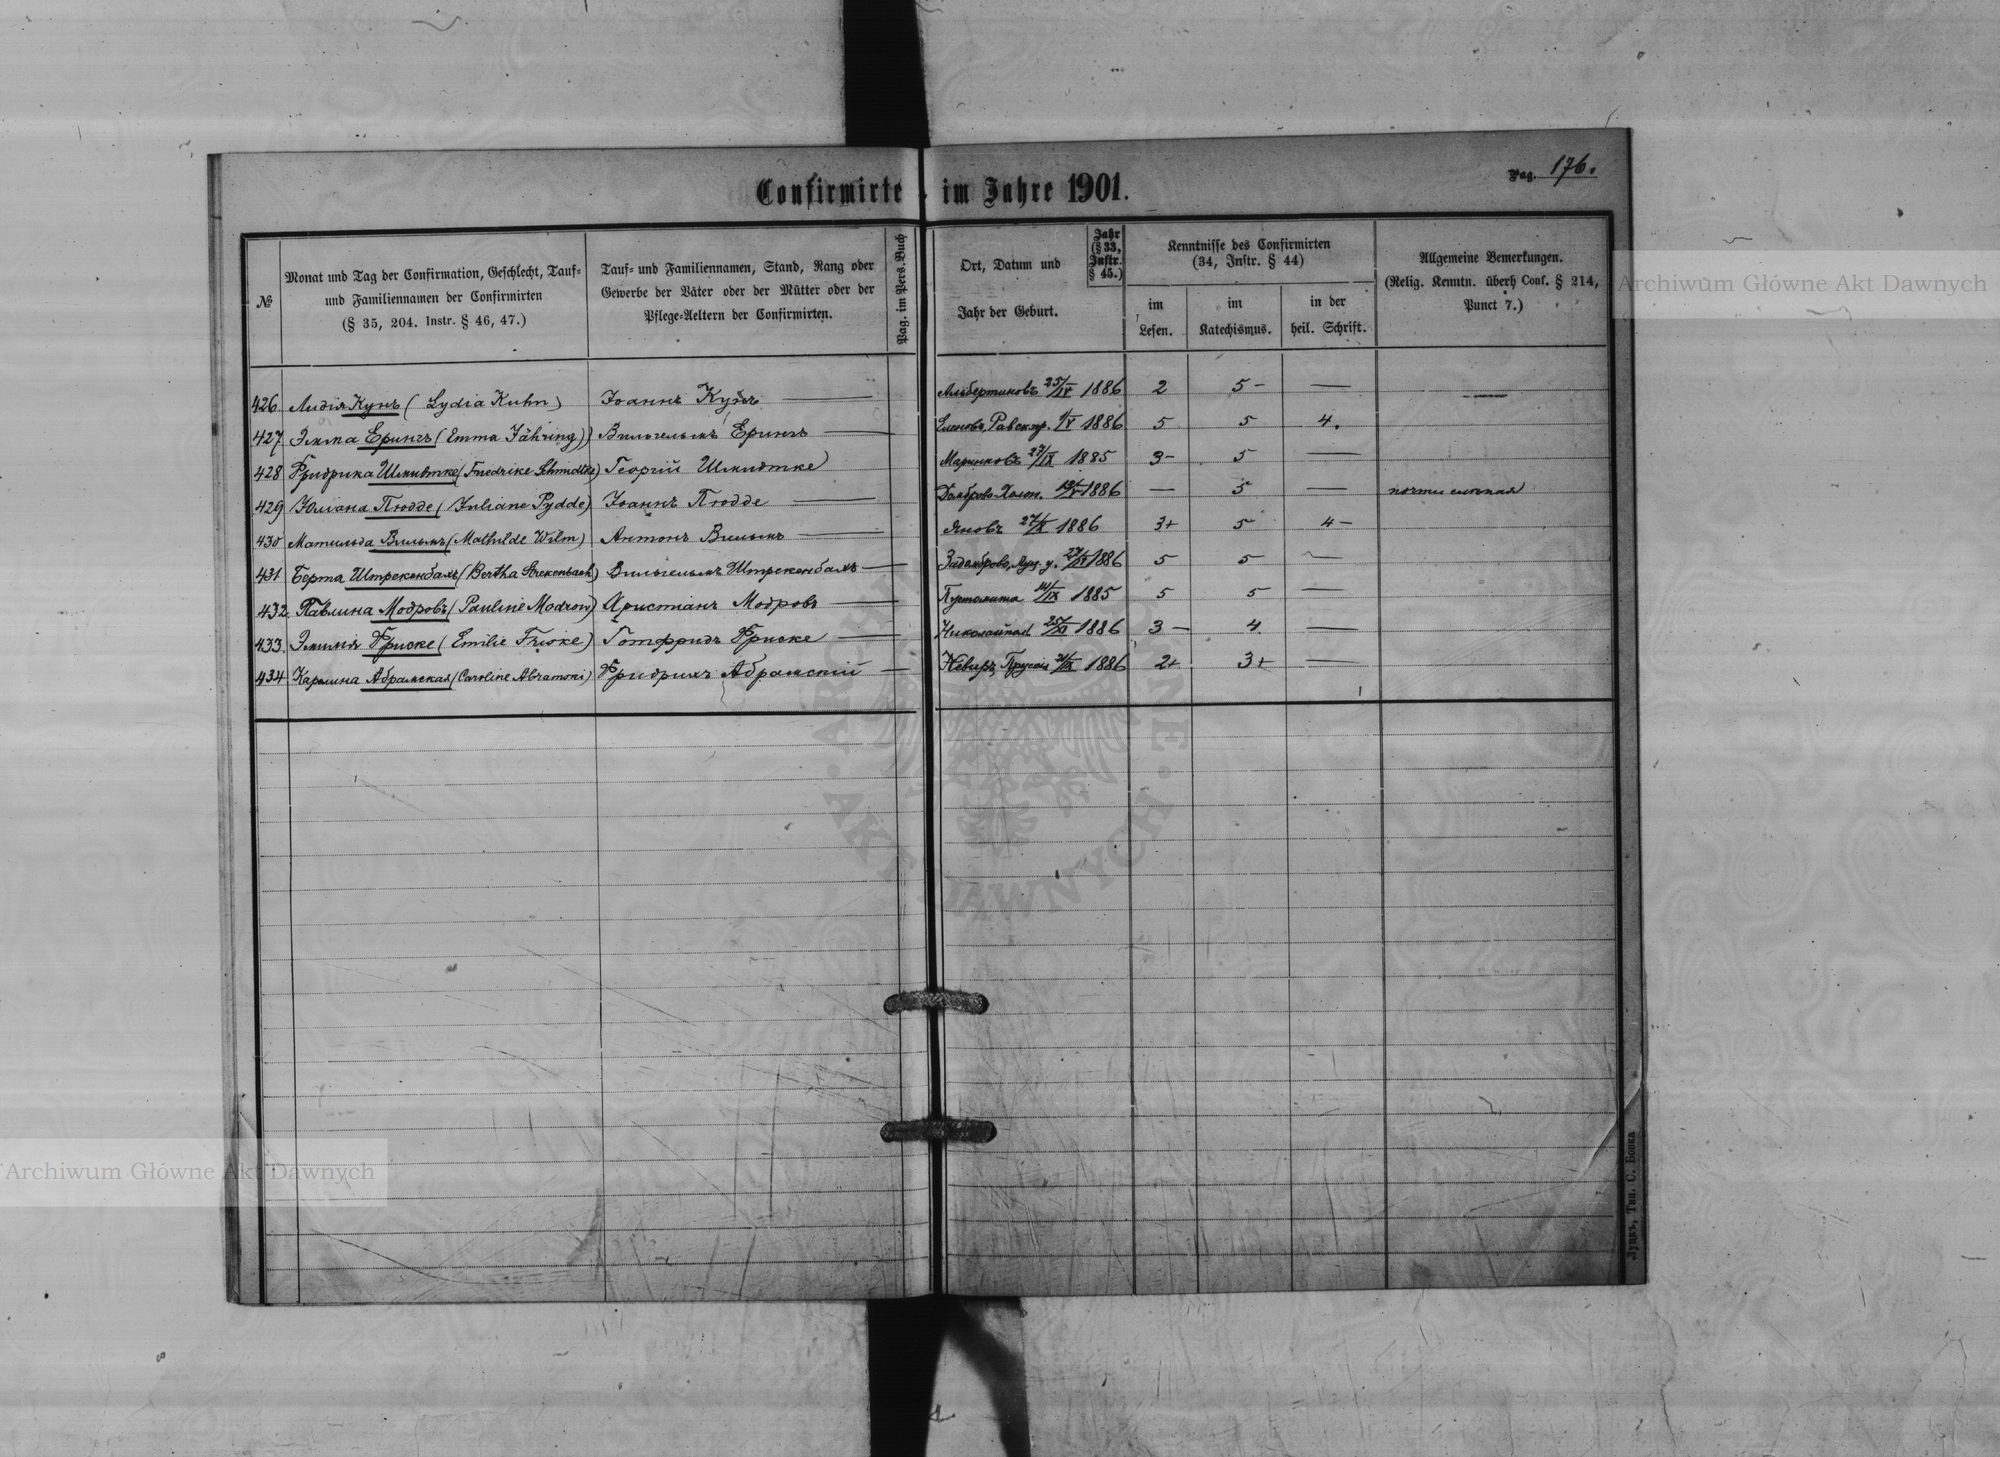 Confirmirte im Jahre 1901.
Pag. 176.
№
Monat und Tag der Confirmation, Geschlecht, Tauf-
und Familiennamen der Confirmirten
(§ 35, 204. Instr. § 46, 47.)
Tauf- und Familiennamen, Stand, Rang oder
Gewerbe der Väter oder der Mütter oder der
Pflege-Aeltern der Confirmirten.
Pag. im Pers. Buch
Ort, Datum und
Jahr der Geburt.
Jahr
(§ 33,
Instr.
§ 45.)
Kenntnisse des Confirmirten
(34, Instr. § 44)
im
Lesen.
im
Katechismus.
in der
heil. Schrift.
Allgemeine Bemerkungen.
(Relig. Kenntn. überh Conf. § 214,
Punct 7.)
426. Лидія Кунъ (Lydia Kuhn) Іоаннъ Кунъ — Альбертиновъ 25/IV 1886 2 5- — —
427. Эмма Ерингъ (Emma Jähring) Вильгельмъ Ерингъ — 1886 5 5 4.
428 Фридрика Шмидтке (Friedrike Schmidtke) Георгій Шмидтке Маринковъ 1885 3- 5 —
429 Юліана Пюдде (Juliane Pydde) Іоаннъ Пюдде — 1886 — 5 — почти слѣпая
430 Матильда Вильмъ (Mathilde Wilm) Антонъ Вильмъ — Яновъ 1886 3+ 5 4-
431. Берта Штрекенбахъ (Bertha Strekenbach) Вильгельмъ Штрекенбахъ — 1886 5 5 —
432 Павлина Модровъ (Pauline Modrow) Христіанъ Модровъ — 1885 5 5 —
433. Эмилія Фриске (Emilie Friske) Готфридъ Фриске — 1886 3- 4. —
434 Каролина Абрамская (Caroline Abramski) Фридрихъ Абрамскій — 1886 2+ 3+ —
Луцкъ, Тип. С. Бонка
Archiwum Główne Akt Dawnych
Archiwum Główne Akt Dawnych